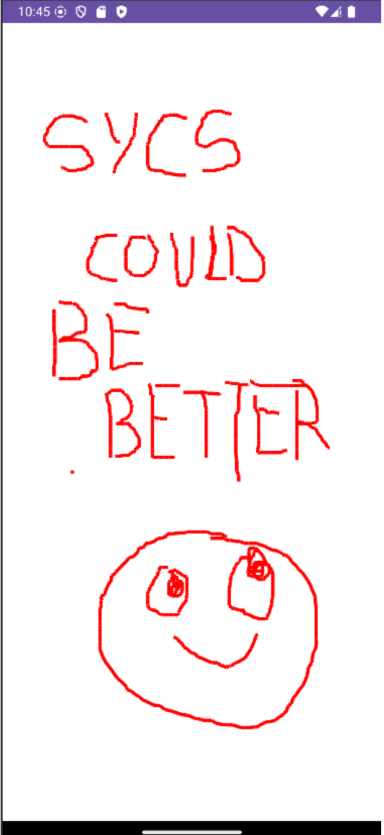 10:45
SYCS
COULD
BE
BETTER